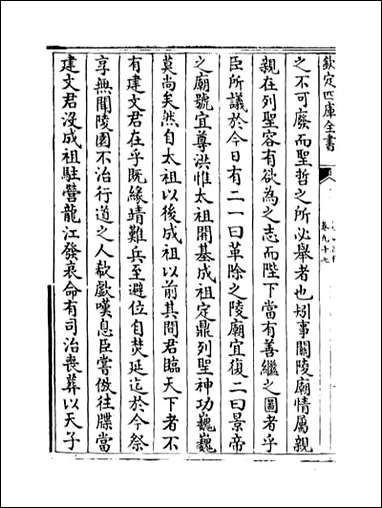 欽定四庫全書
卷九十七
之不可廢而聖哲之所必舉者也矧事關陵廟情屬親
親在列聖容有欲為之志而陛下當有善繼之圖者乎
臣所議於今日有二一曰革除之陵廟宜復二曰景帝
之廟號宜尊洪惟太祖開基成祖定鼎列聖神功巍巍
莫尚矣然自太祖以後成祖以前其間君臨天下者不
有建文君在乎既緣靖難兵至避位自焚延迄於今祭
享無聞陵園不治行道之人欷歔嘆息臣嘗倣往牒當
建文君沒成祖駐營龍江發哀命有司治喪葬以天子